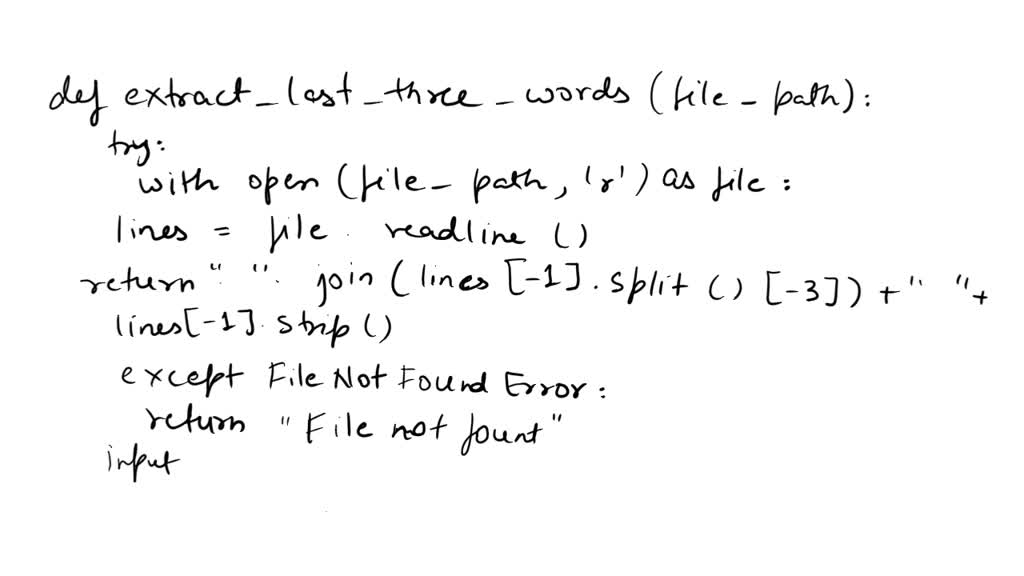 def extract_last_three_words (file_path):
try:
with open (file_path, 'r') as file :
lines = file . readline ()
return " ". join (lines [-1]. split () [-3]) + " " +
lines[-1]. strip ()
except File Not Found Error :
return "File not fount"
input